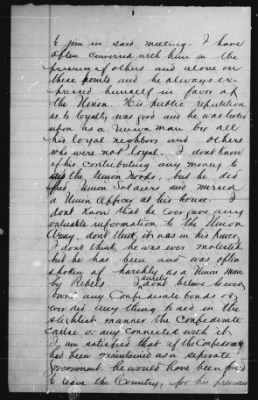 1
to join in said meeting. I have
often conversed with him in the
presence of others and alone on
these points and he always ex-
pressed himself in favor of
the Union. His public reputation
as to loyalty was good and he was looked
upon as a Union man by all
his loyal neighbors and others
who were not loyal. I dont know
of his contributing any money to
the Union troops, but he did
feed Union Soldiers and nursed
a Union Officer at his house. I
dont know that he ever gave any
valuable information to the Union
Army, dont think it was in his power.
I dont think he was ever molested
but he has been and was often
spoken of harshly as a Union man
by Rebels. I dont believe he ever
owned any Confederate bonds or
ever did any thing to aid in the
slightest manner the Confederate
cause or any connected with it.
I am satisfied that if the Confederacy
had been maintained as a seperate
government he would have been forced
to leave the Country, for his previous